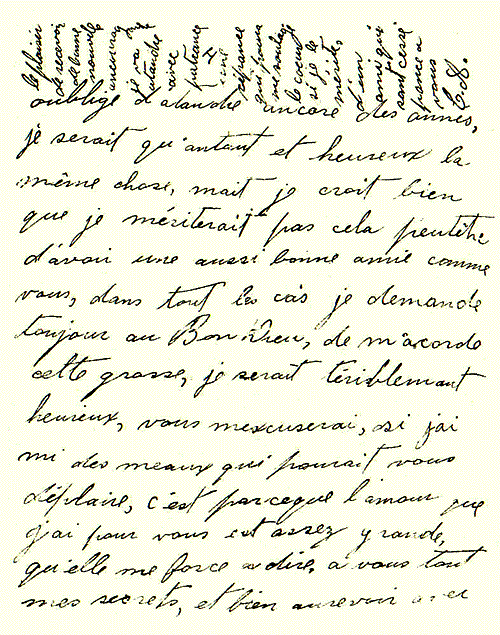 oubligé d'atandre encore des années,
je serait qu'antant et heureux la
même chose, mait je croit bien
que je mériterait pas cela peutêtre
d'avoir une aussi bonne amie comme
vous, dans tout les cas je demande
toujour au Bon Dieu, de m'acorde
cette grasse, je serait tériblemant
heureux, vous mexcuserai, si j'ai
mi des meaux qui pourait vous
déplaire, c'est parceque l'amour que
j'ai pour vous est assez grande,
qu'elle me force a dire, a vous tout
mes secrets, et bien aurevoir avec
le plaisir
de recevoir
de bonne
nouvelle
je vai
atandre
avec
patience
une
réponse
qui poura
me soulagé
le coeur
si je le
mérite,
d'un
ami qui
sans cesse
pense a
vous